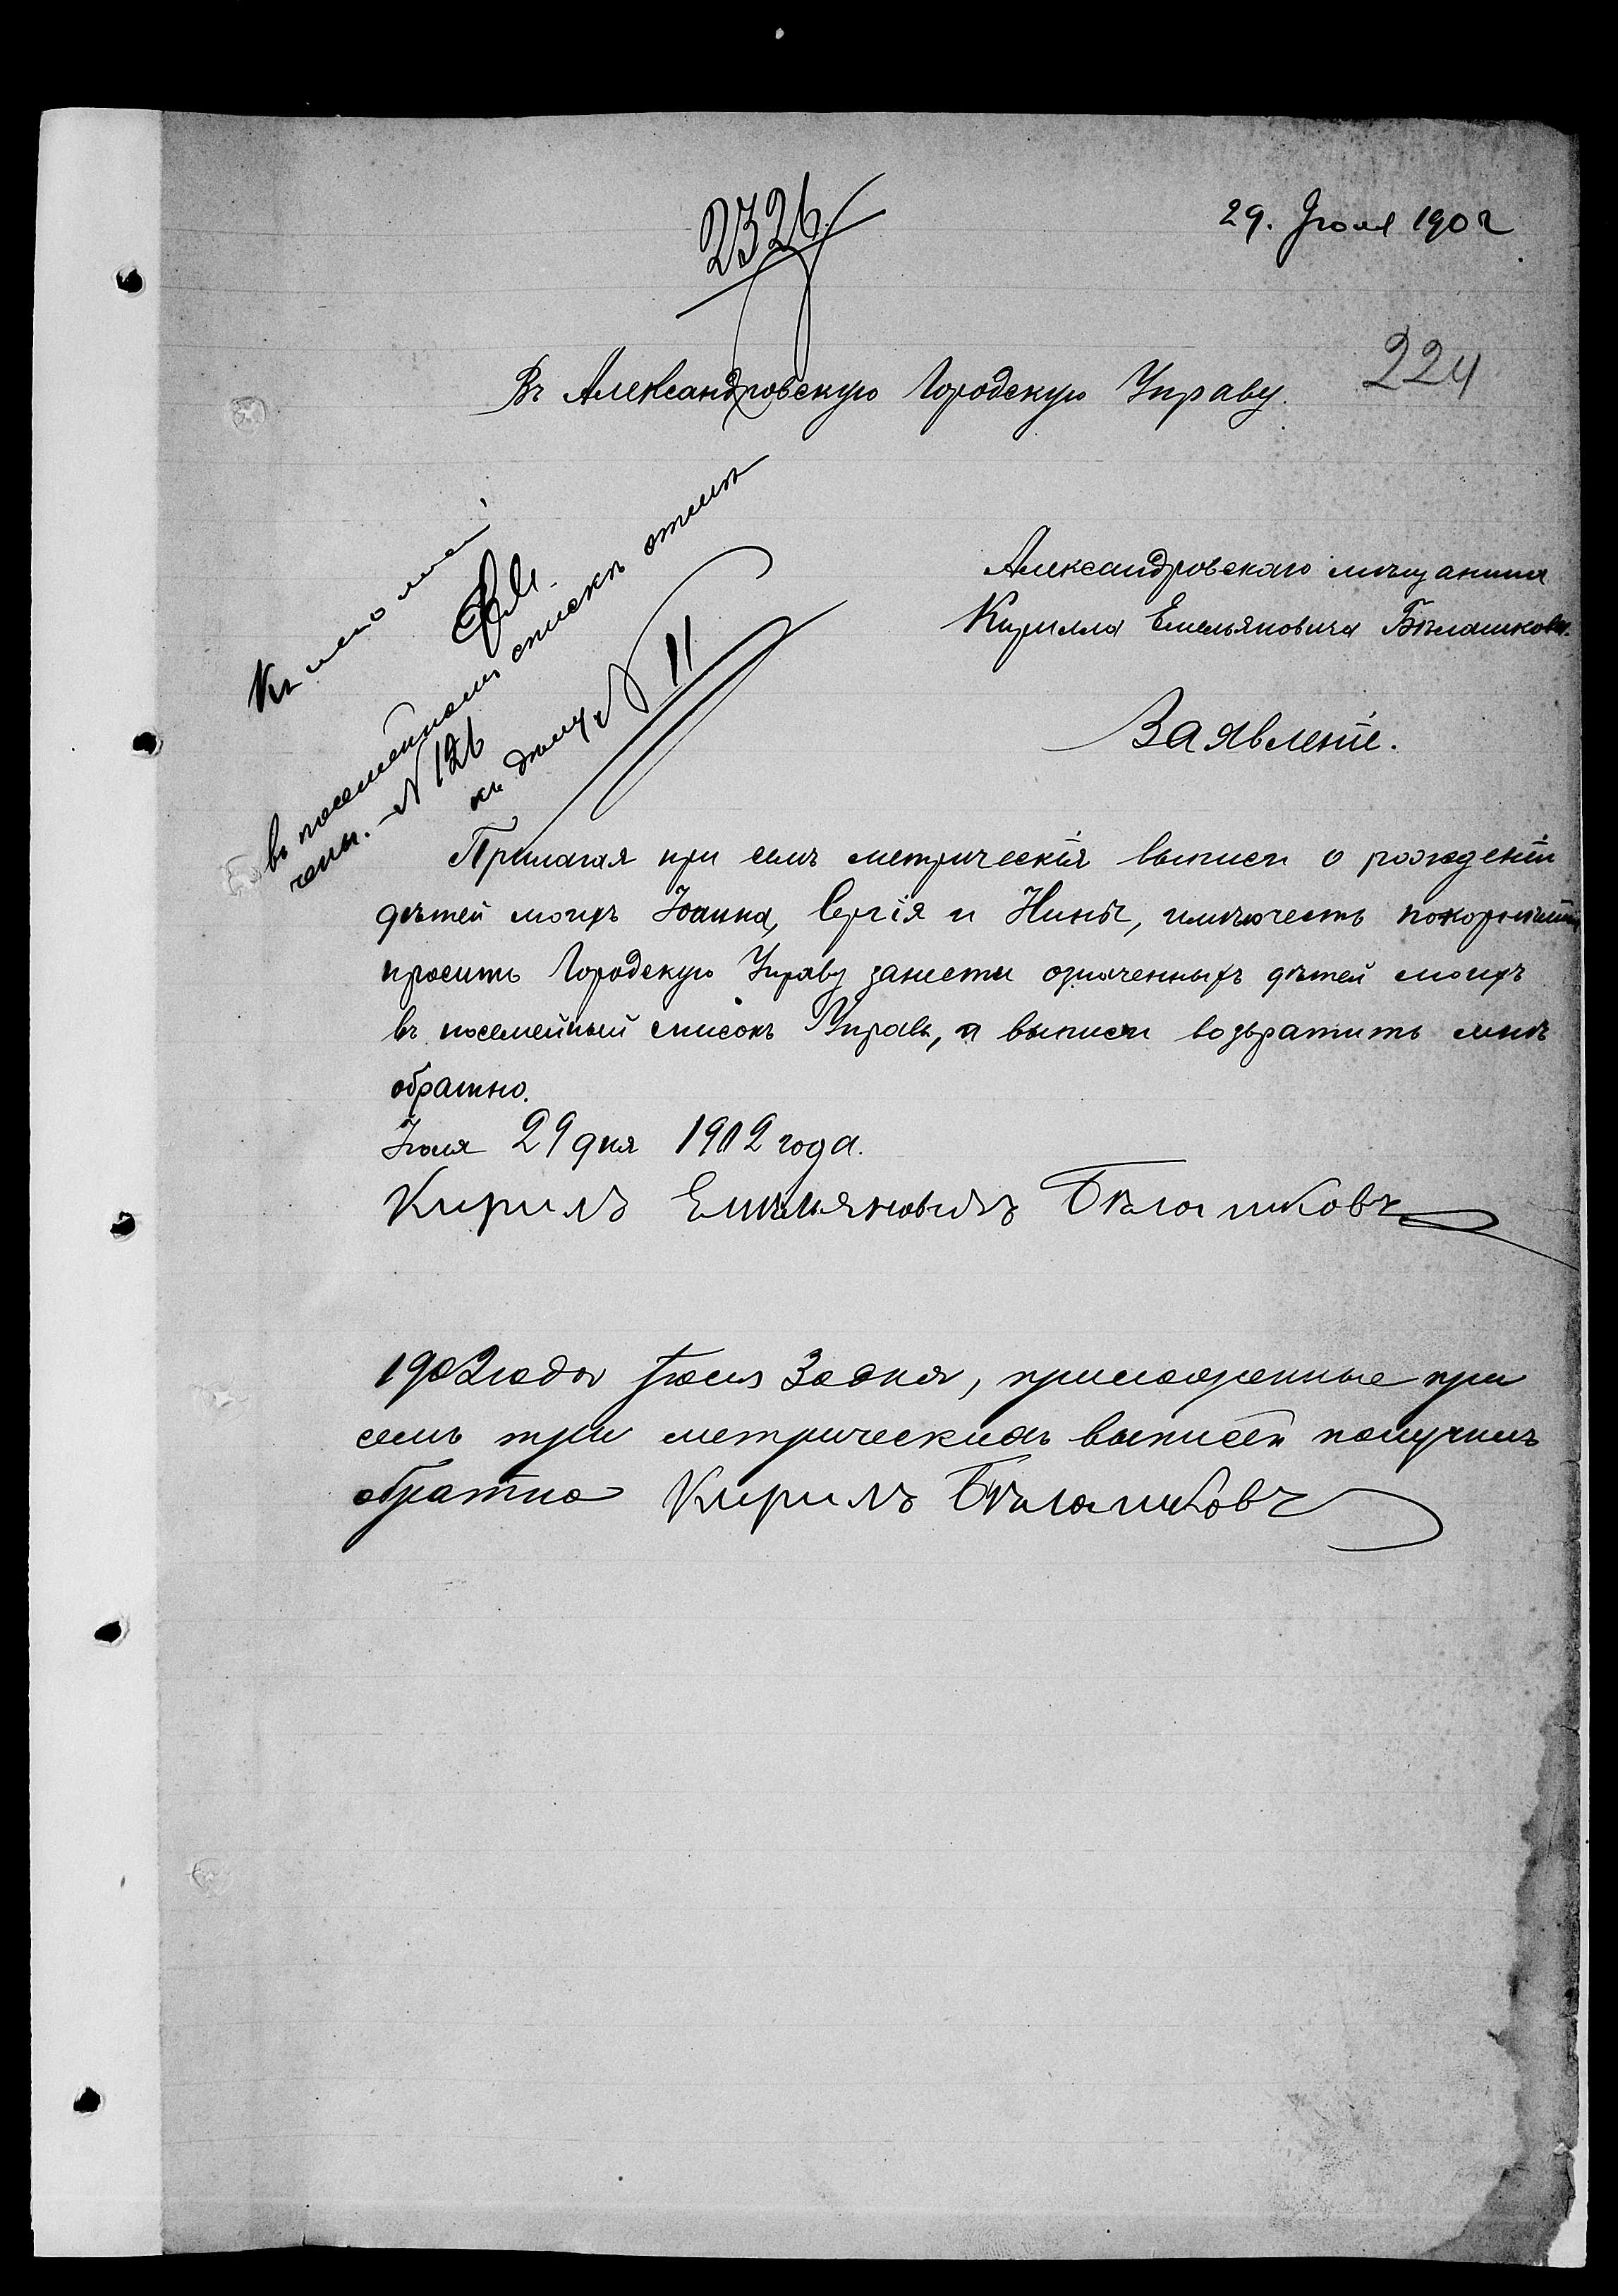 2326
29. Июля 1902
224
Въ Александровскую Городскую Управу.
Александровскаго мѣщанина
Кирилла Емельяновича Бѣлашкова.
Заявленіе.
Къ
въ посемейномъ спискѣ отмѣ
чены. № 126
къ дѣлу № 11
Прилагая при семъ метрическія выписи о рожденіи
дѣтей моихъ Іоанна, Сергія и Нины, имѣю честь покорнѣйше
просить Городскую Управу занести означенныхъ дѣтей моихъ
въ посемейный списокъ Управы, а выписи возвратить мнѣ
обратно.
Іюля 29 дня 1902 года.
Кирилъ Емельяновичъ Бѣлашковъ
1902 года Іюля 30 дня, приложенные при
семъ три метрическихъ выписей получилъ
обратно Кирилъ Бѣлашковъ